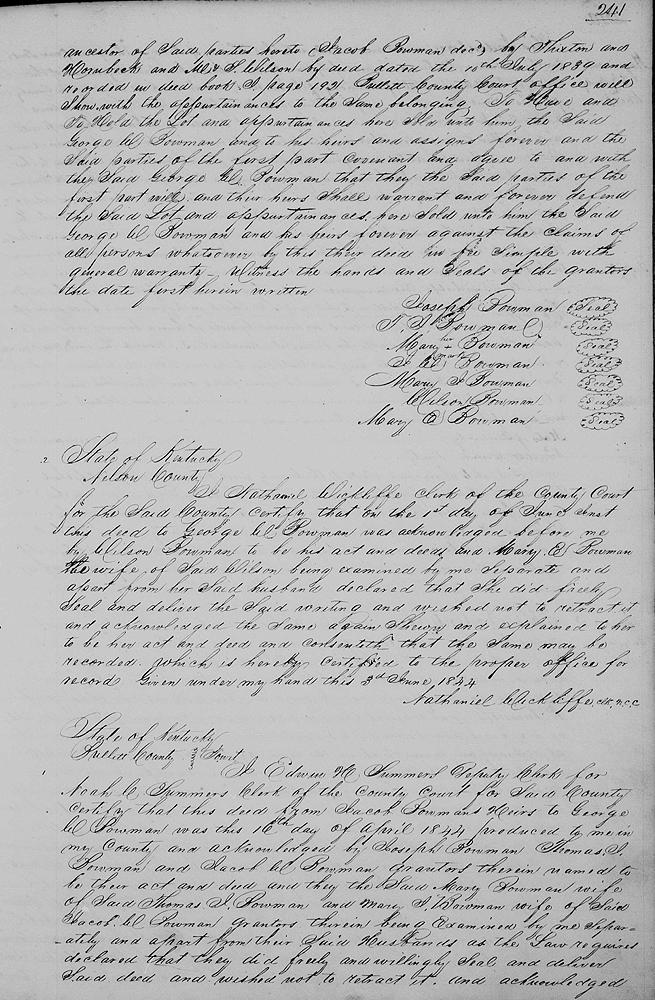 241
ancestor of Said parties hereto (Jacob Bowman decd) by Thixton and
Hornbeck and S. Wilson by deed dated the 10th July 1839 and
recorded in deed book I page 192. Bullitt County Court office will
Show, with the appurtainances to the Same belonging, To Have and
To Hold the Lot and appurtainances here unto him the Said
George W Bowman and to his heirs and assigns forever and the
Said parties of the first part Covenant and agree to and with
the Said George W. Bowman that they the Said parties of the
first part will and their heirs Shall warrant and forever defend
the Said Lot and appurtainances here Sold unto him the Said
George W Bowman and his heirs forever against the Claims of
all persons whatsoever by this their deed in fee Simple with
general warrants Witness the hands and Seals of the grantors
the date first herein written
Joseph Bowman (Seal)
T. J. Bowman (Seal)
Mary her + mark Bowman (Seal)
J W Bowman (Seal)
Mary J Bowman (Seal)
Wilson Bowman (Seal)
Mary Bowman (Seal)
2 State of Kentucky
Nelson County
I Nathaniel Wickliffe clerk of the County Court
for the Said County certify that on the 1st day of June Inst
this deed to George W Bowman was acknowledged before me
by Wilson Bowman to be his act and deed, and Mary Bowman
the wife of Said Wilson being examined by me Separate and
apart from her Said husband declared that She did freely
Seal and deliver the Said writing and wished not to retract it
and acknowledged the Same again Shewn and explained to her
to be her act and deed and consenteth that the Same may be
recorded. which is hereby Certified to the proper office for
record Given under my hand this 3d June, 1844
Nathaniel Wickliffe clk N.C.C
State of Kentucky
Bullitt County } Sct
1 I Edwin H. Summers Deputy Clerk for
Noah C Summers Clerk of the County Court for Said County
Certify that this deed from Jacob Bowmans Heirs to George
W Bowman was this 16th day of April 1844 produced to me in
my County and acknowledged by Joseph Bowman Thomas. J.
Bowman and Jacob W Bowman grantors therein named to
be their act and deed and they the Said Mary Bowman wife
of Said Thomas J. Bowman and Mary J. Bowman wife of Said
Jacob W Bowman grantors therein being Examined by me Separ-
-ately and apart from their Said Husbands as the Law requires
declared that they did freely and willingly Seal and deliver
Said deed and wished not to retract it. and acknowledged